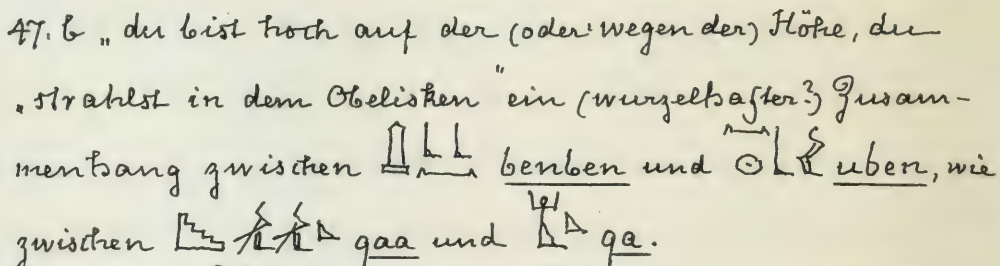 47. b „du bist hoch auf der (oder: wegen der) Höhe, du
„strahlst in dem Obelisken“ ein (wurzelhafter?) Zusam-
menhang zwischen benben und uben, wie
zwischen qaa und qa.